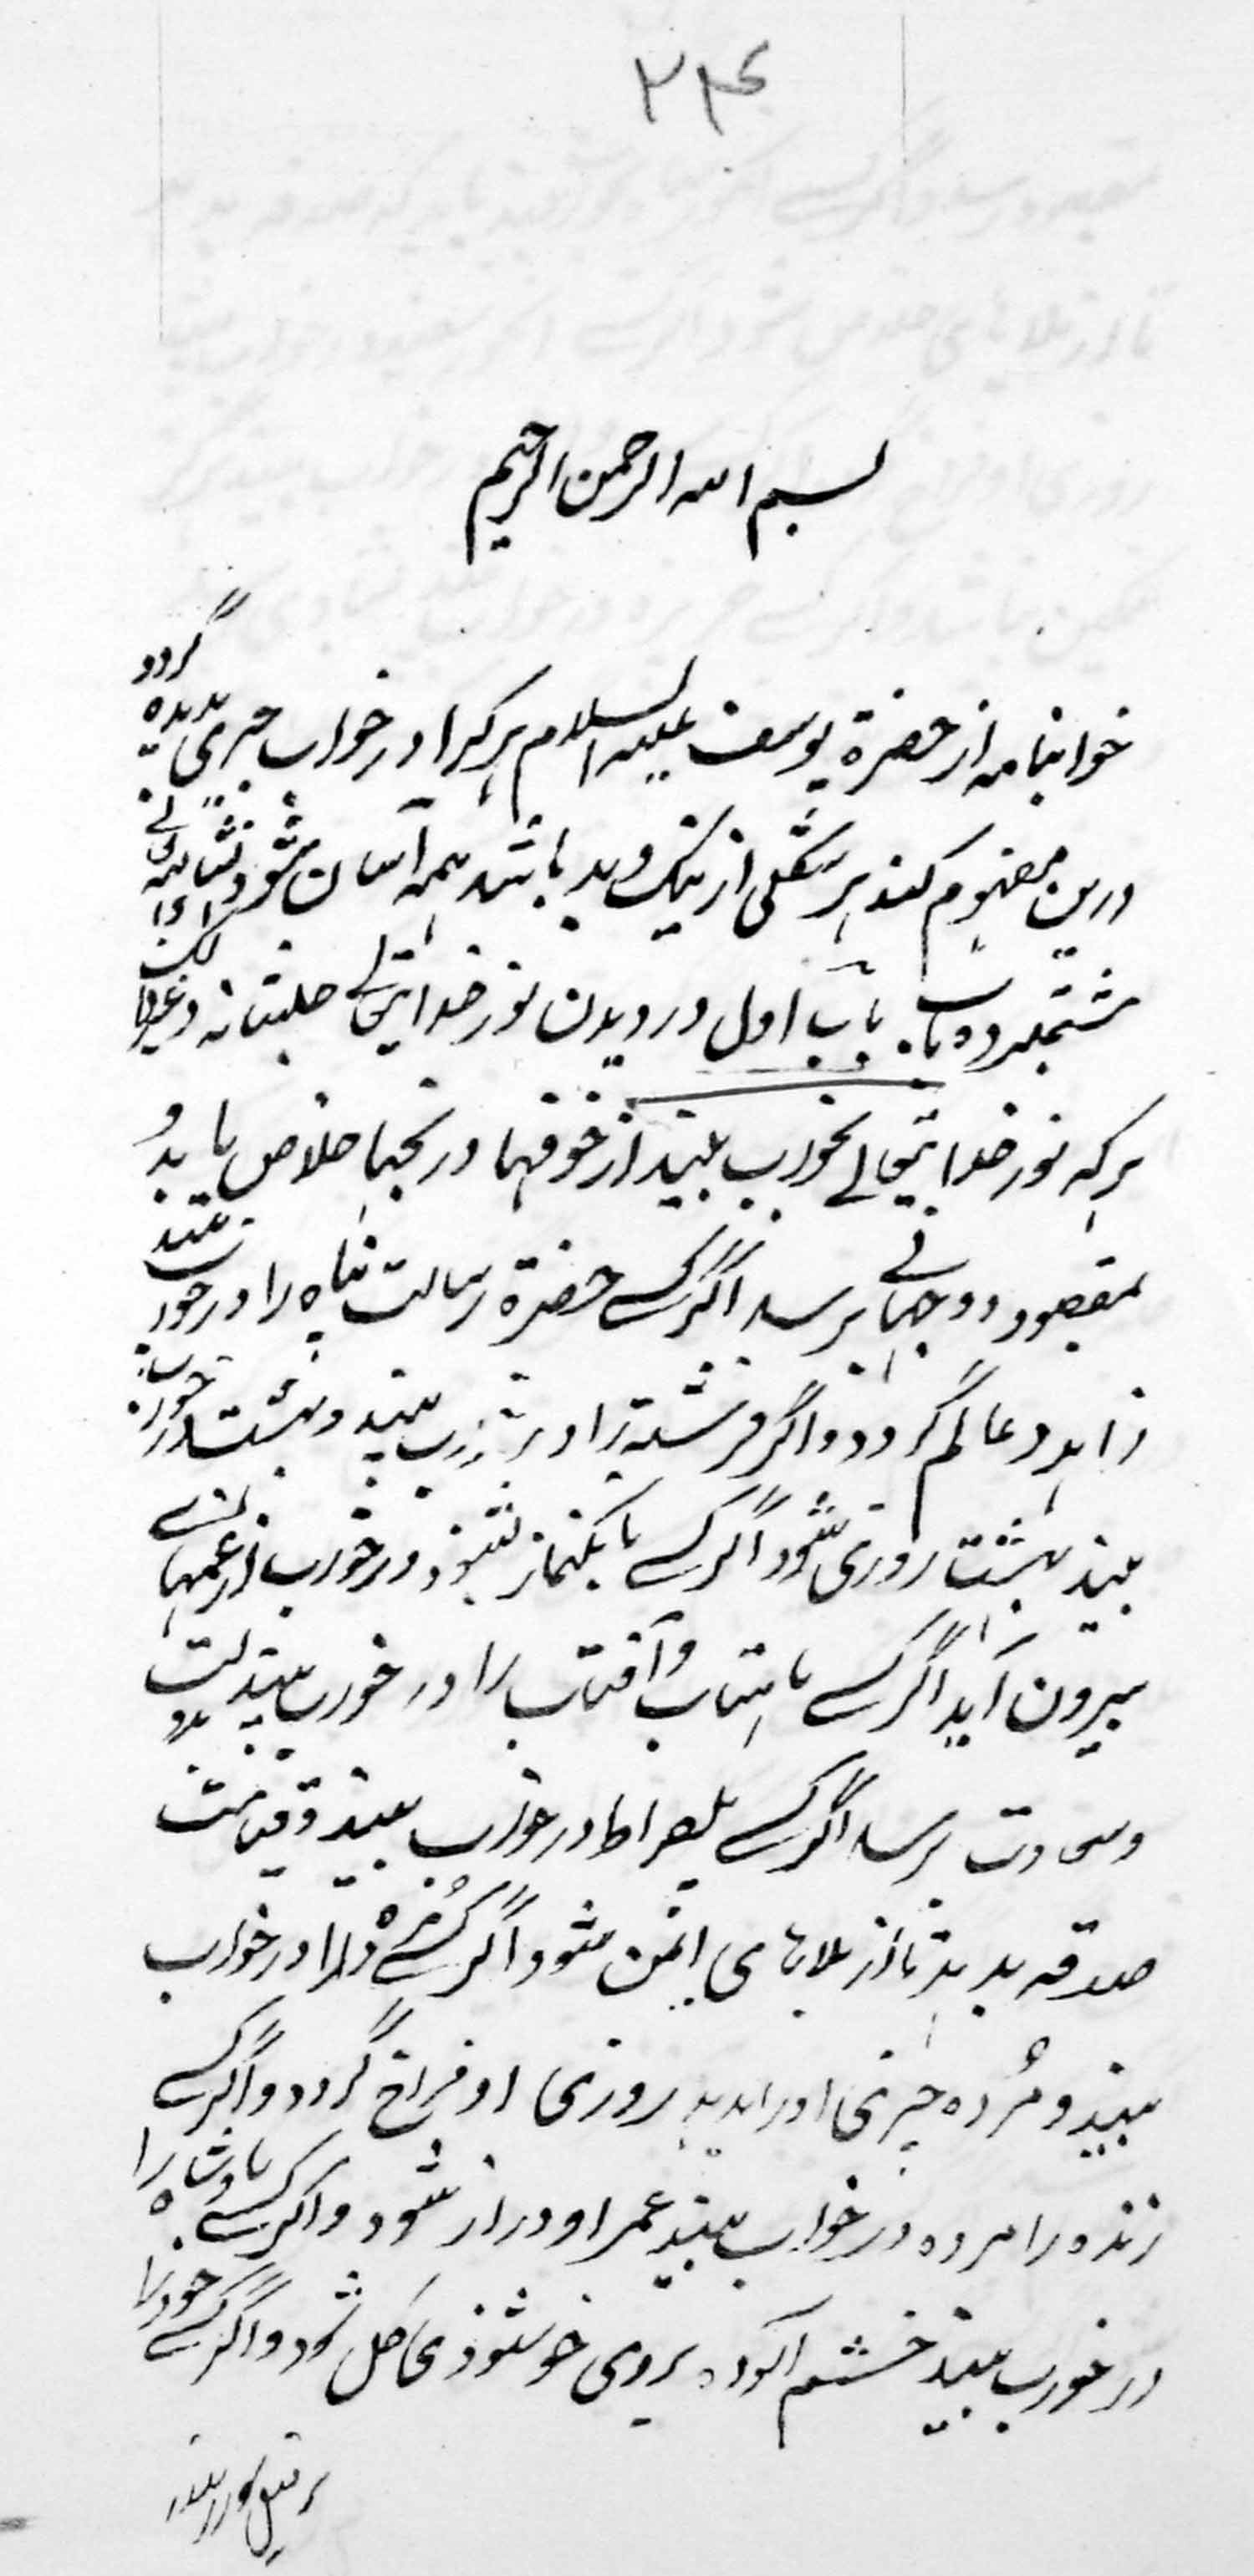 ۲۳۶
بسم الله الرحمن الرحیم
خوابنامه از حضرة یوسف علیه السلام هرکرا در خواب چیزی پدیده گردد
درین مفهوم کند هر شکلی از نیک و بد باشد همه آسان شود انشاالله تعالی
مشتملبر دو باب باب اول در دیدن نور خدایتعالی و غیره
هر که نور خدایتعالی بخواب بیند از خوفها و رنجها خلاص یابد و
بمقصود دو جهانی برسد اگر کسی حضرة رسالت پناه را در خواب بیند
زاهد و عالم گردد و اگر فرشته را و بیند و بهشت در خواب
بیند بهشت روزی شود اگر کسی بانگ نماز بشنود در خواب از غمها
بیرون آید اگر کسی ماهتاب و آفتاب را در خواب بیند بدولت
وسعادت برسد اگر کسی پلصراط در خواب بیند و قیامت
صدقه بدهد تا از بلاهای ایمن شود اگر کسی مرده را در خواب
بیند و مرده چیزی او را بدهد روزی او فراخ گردد و اگر کسی
زنده را مرده در خواب بیند عمر او دراز شود و اگر کسی پادشاه را
در خواب بیند خشم آلوده بروی خوشنودی حاصل شود و اگر کسی خود را
بر فیل سوار بیند